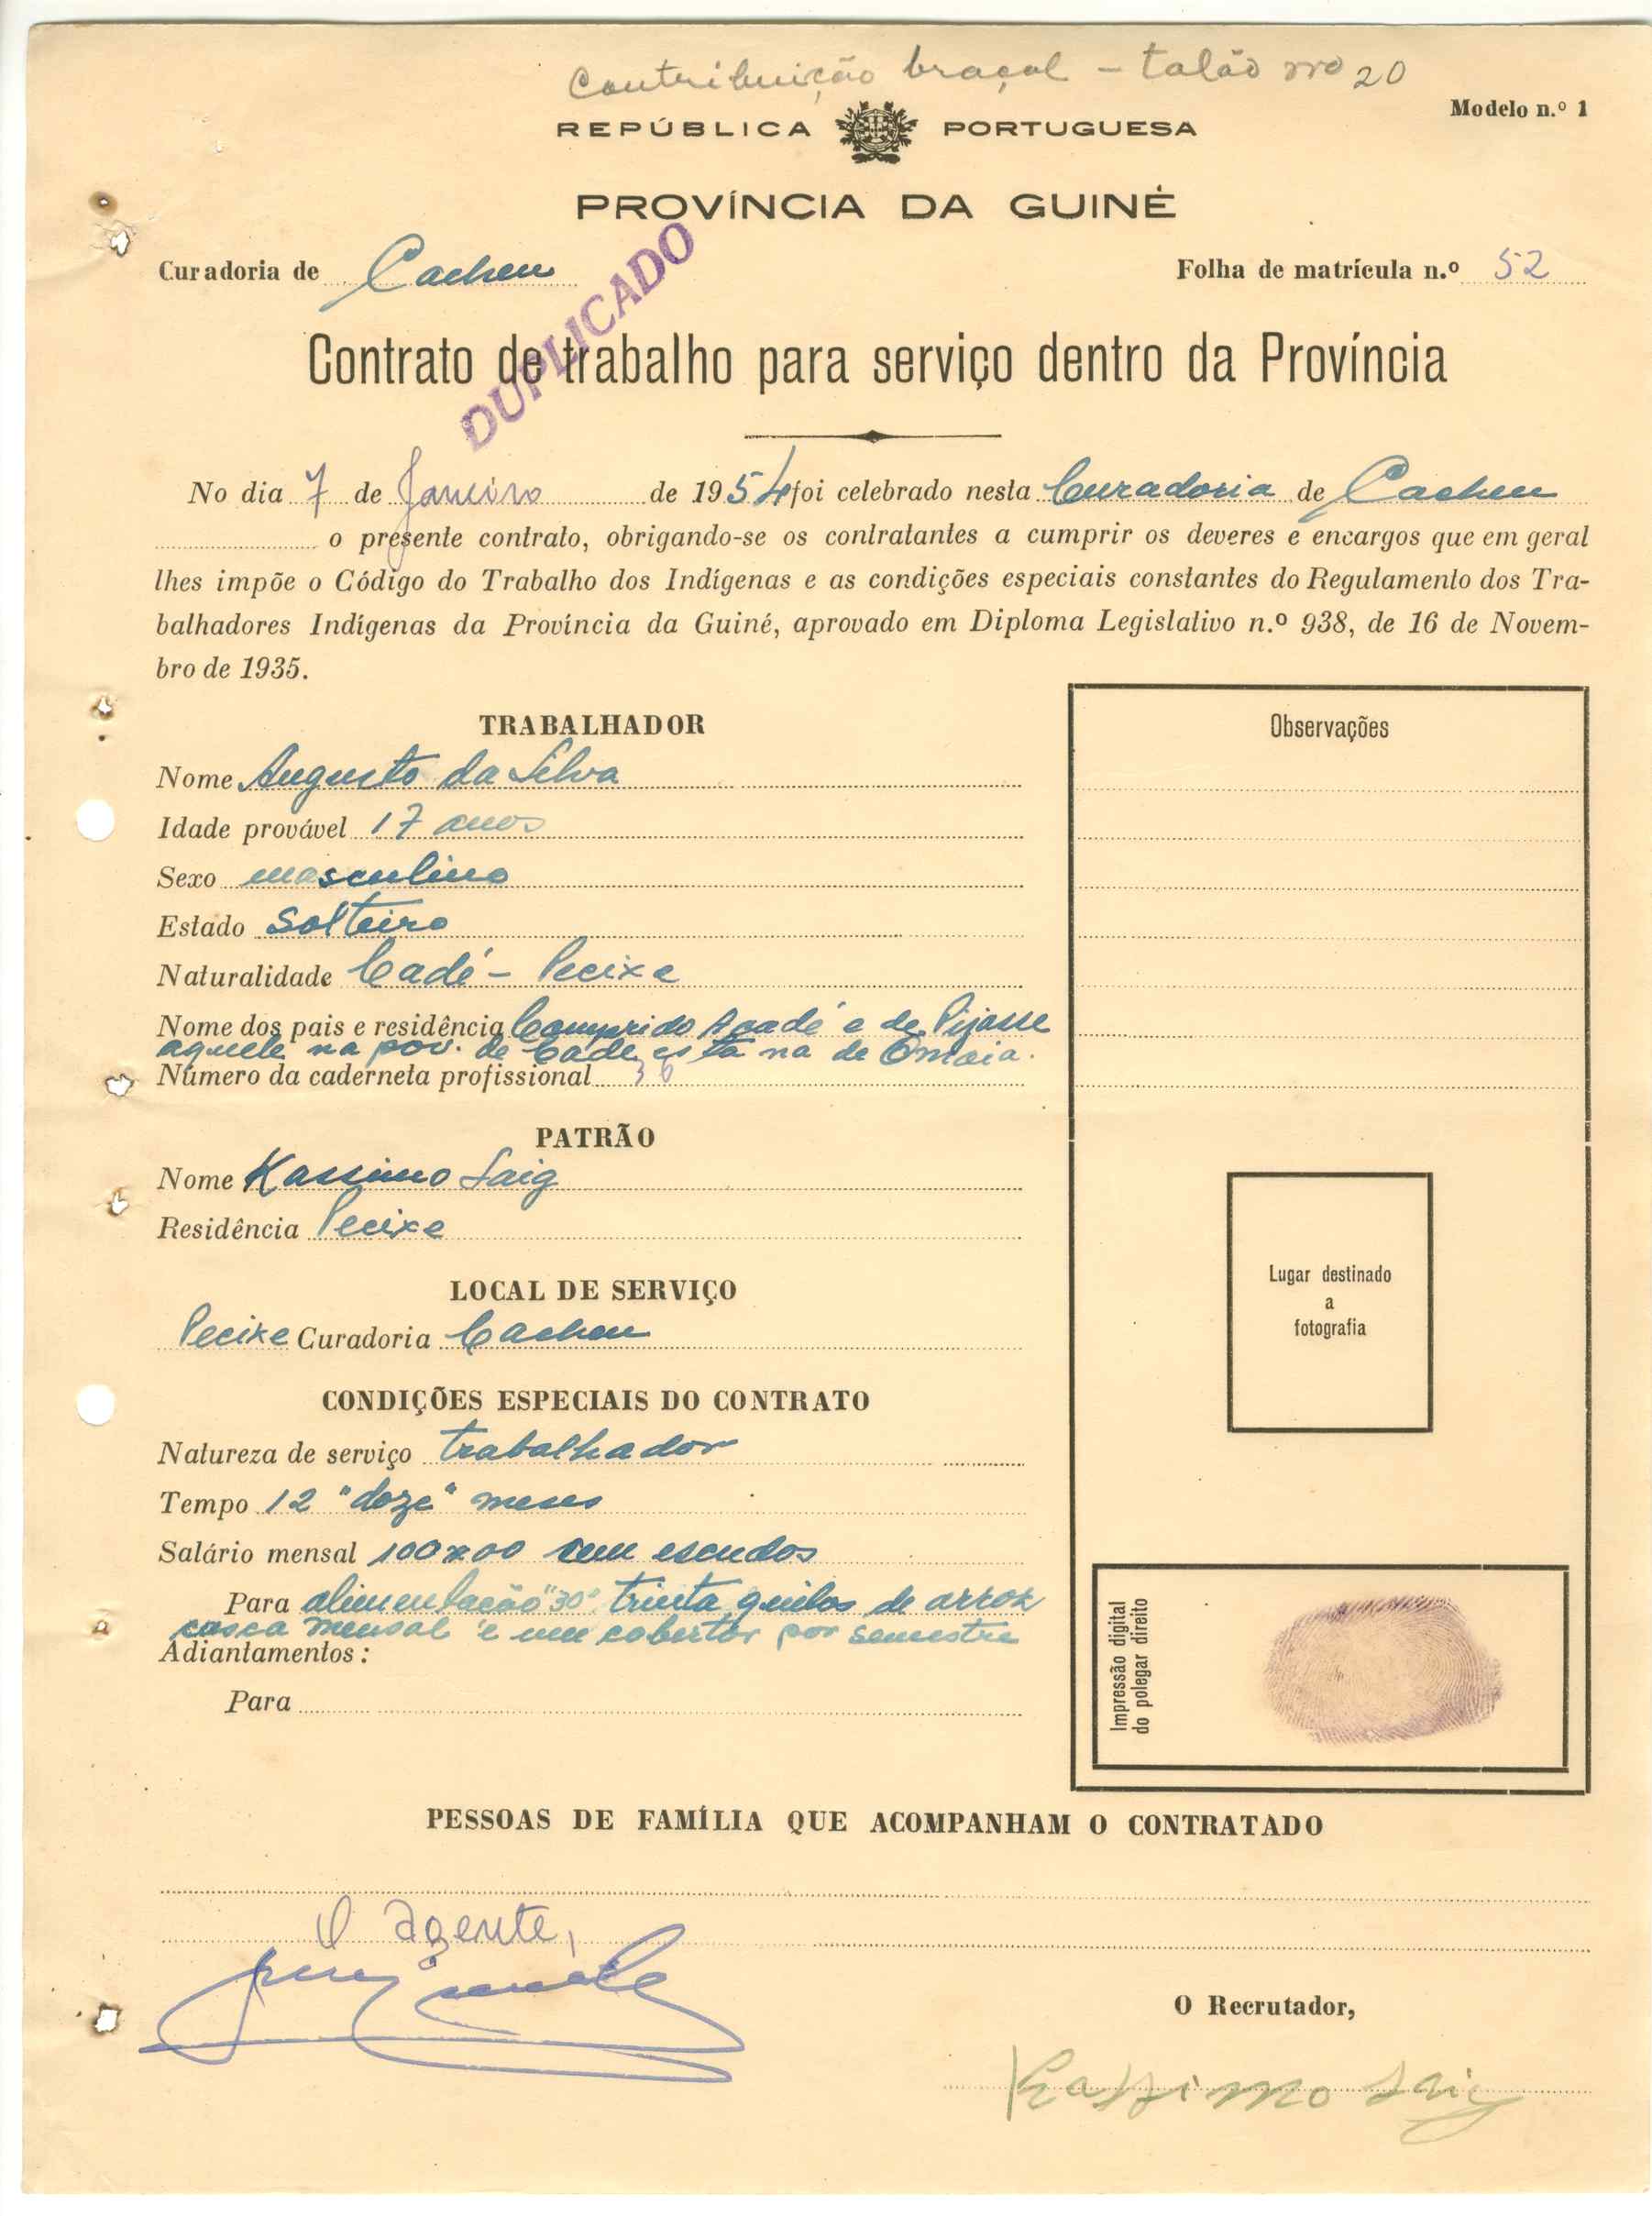 Contribuição braçal - talão nro 20
Modelo n.º 1
REPÚBLICA PORTUGUESA
PROVÍNCIA DA GUINÉ
Curadoria de Cacheu
Folha de matrícula n.º 52
DUPLICADO
Contrato de trabalho para serviço dentro da Província
No dia 7 de Janeiro de 1954 foi celebrado nesta Curadoria de Cacheu
o presente contrato, obrigando-se os contratantes a cumprir os deveres e encargos que em geral
lhes impõe o Código do Trabalho dos Indígenas e as condições especiais constantes do Regulamento dos Tra-
balhadores Indígenas da Província da Guiné, aprovado em Diploma Legislativo n.º 938, de 16 de Novem-
bro de 1935.
TRABALHADOR
Nome Augusto da Silva
Idade provável 17 anos
Sexo masculino
Estado Solteiro
Naturalidade Cadé - Pecixe
Nome dos pais e residência Comprido e de Pijasse
aquele na pov. de Cadé esta na de Omaia.
Número da caderneta profissional 36
PATRÃO
Nome Kassimo Saig
Residência Pecixe
LOCAL DE SERVIÇO
Pecixe Curadoria Cacheu
CONDIÇÕES ESPECIAIS DO CONTRATO
Natureza de serviço trabalhador
Tempo 12 "doze" meses
Salário mensal 100$00 cem escudos
Para alimentação "30" trinta quilos de arroz
casca mensal e um cobertor por semestre
Adiantamentos:
Para
Observações
Lugar destinado
a
fotografia
Impressão digital
do polegar direito
PESSOAS DE FAMÍLIA QUE ACOMPANHAM O CONTRATADO
O agente,
O Recrutador,
Kassimo Saig